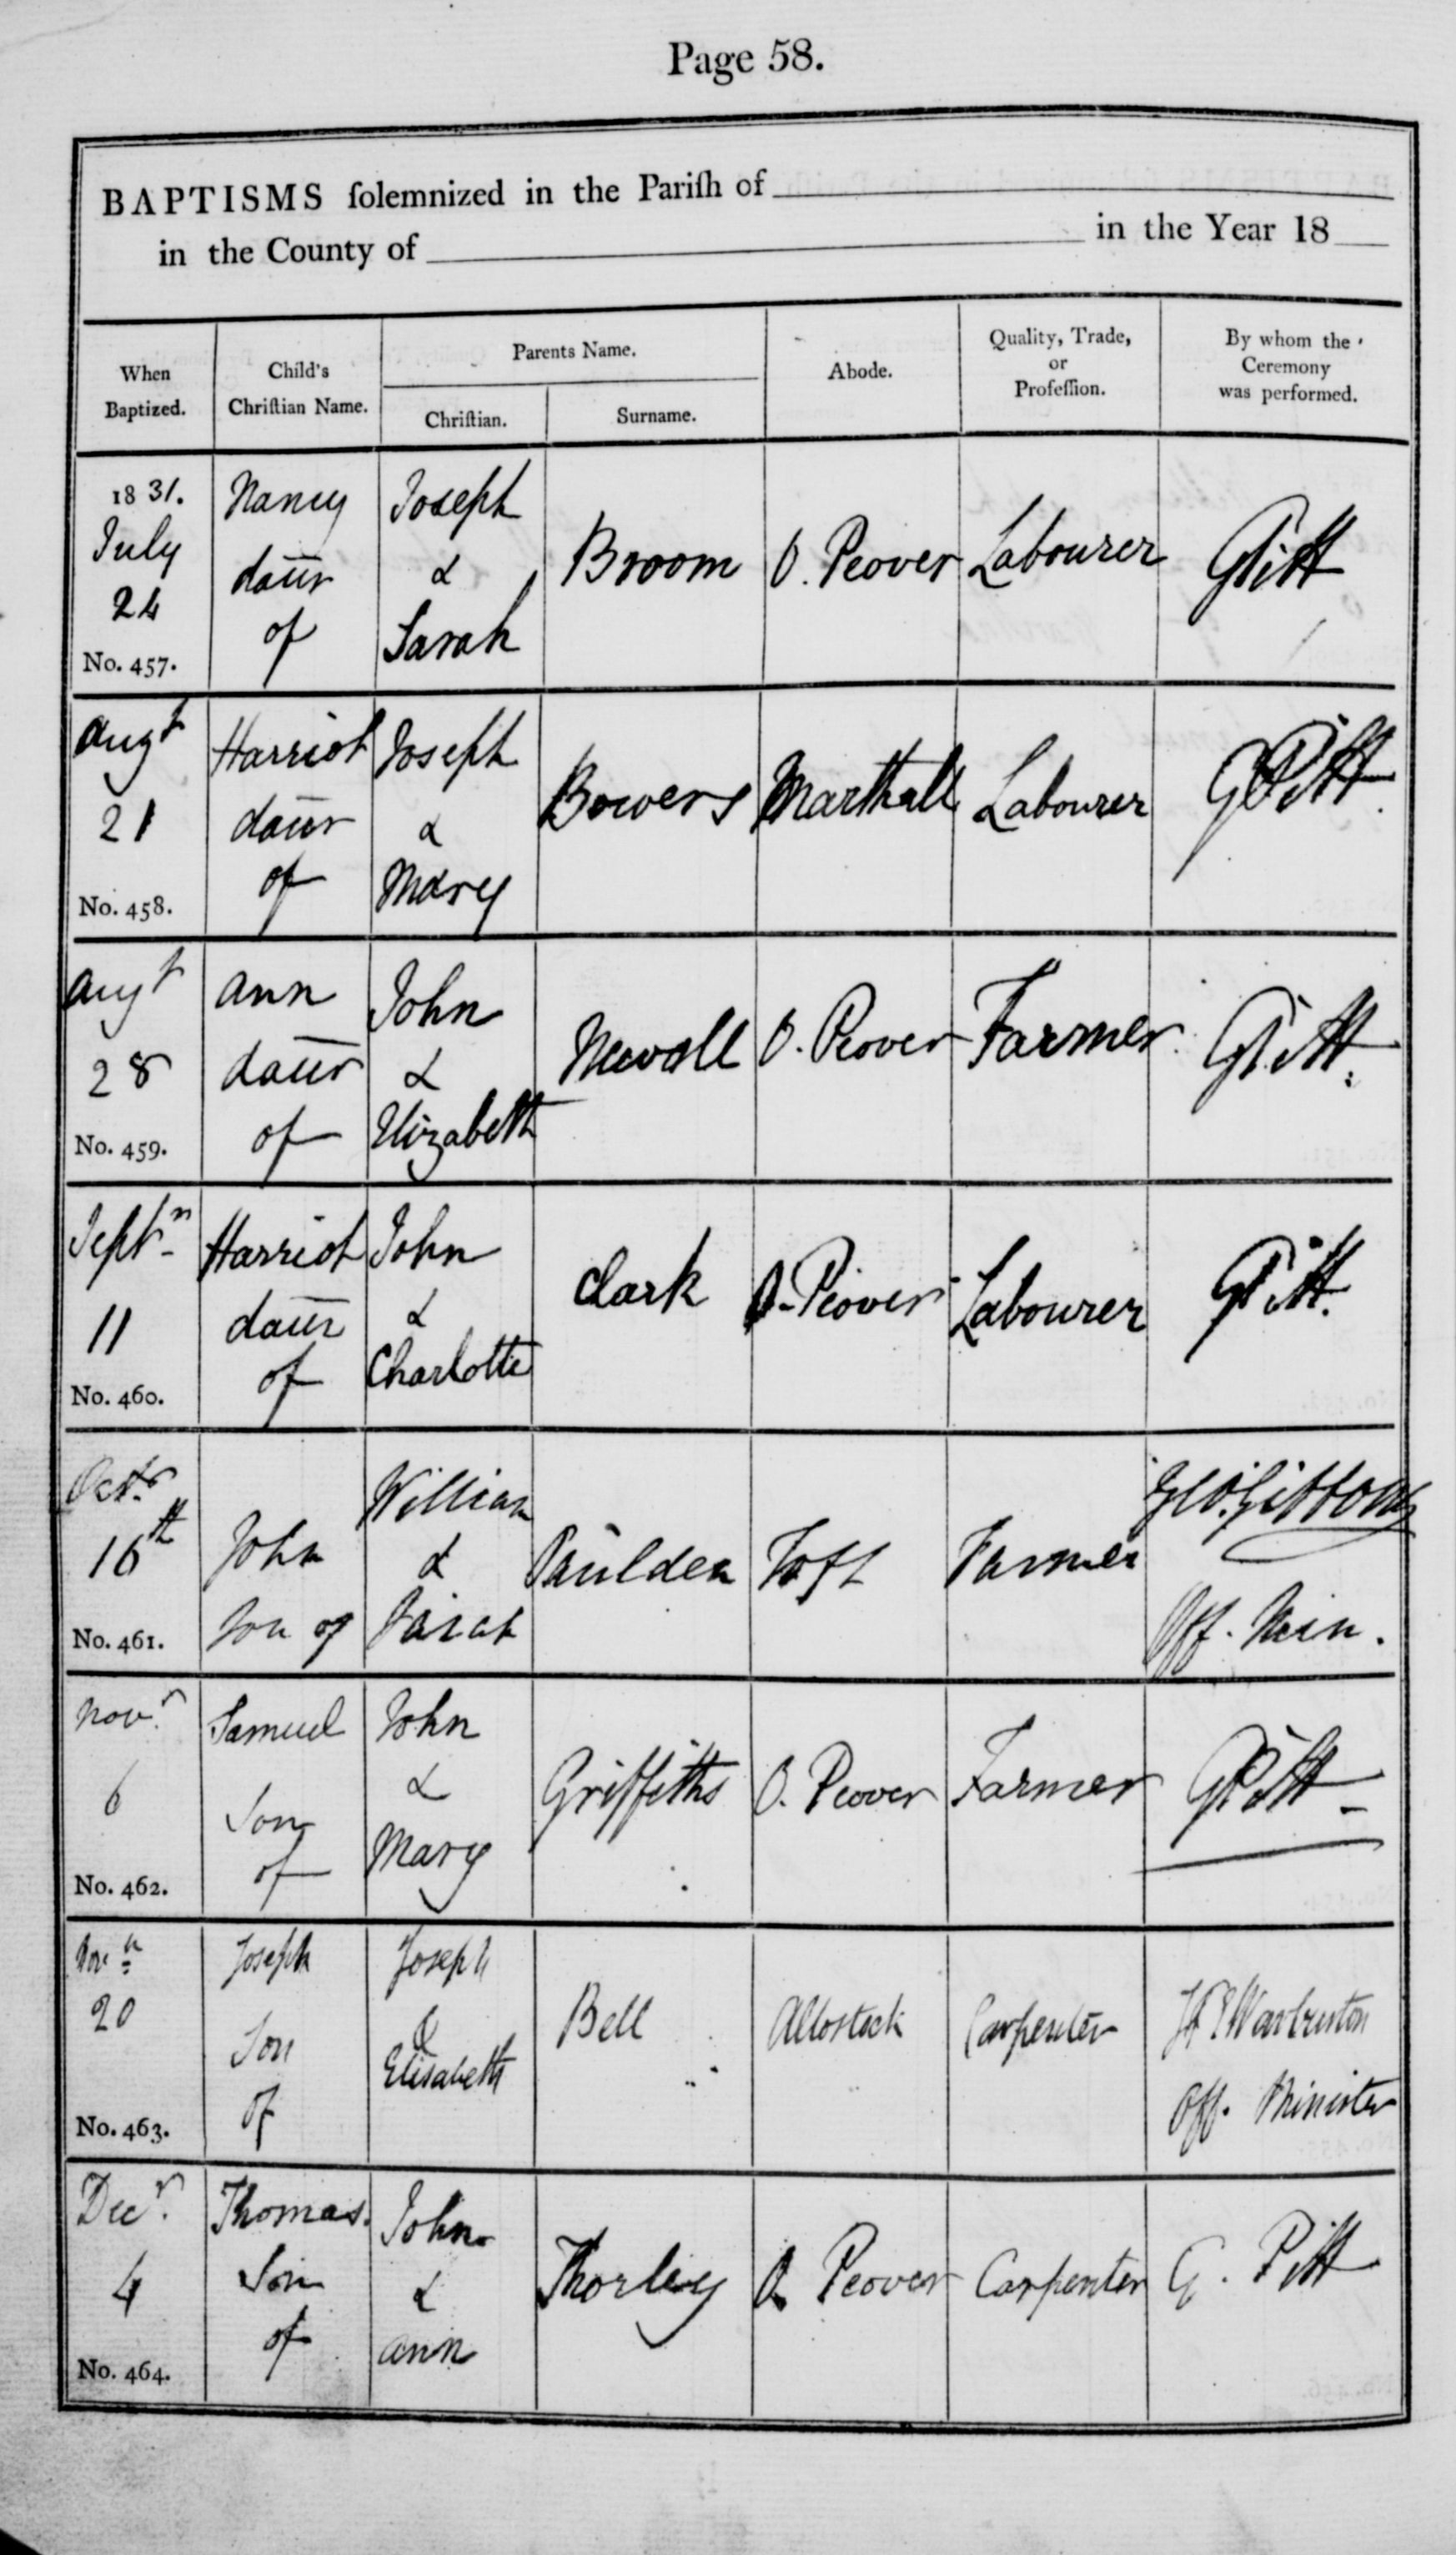 Page 58.
BAPTISMS ſolemnized in the Pariſh of
in the County of in the Year 18
When Baptized.
Child's Chriſtian Name.
Parents Name.
Chriſtian.
Surname.
Abode.
Quality, Trade, or Profeſſion.
By whom the Ceremony was performed.
1831.
July
24
No. 457.
Nancy
daur
of
Joseph
&
Sarah
Broom
O. Peover
Labourer
GPitt
Augt
21
No. 458.
Harriot
daur
of
Joseph
&
Mary
Bowers
Marthall
Labourer
GPitt
Augt
28
No. 459.
Ann
daur
of
John
&
Elizabeth
Newall
O. Peover
Farmer
GPitt
Septr
11
No. 460.
Harriot
daur
of
John
&
Charlotte
Clark
O. Peover
Labourer
GPitt.
Octr
16th
No. 461.
John
Son of
William
&
Sarah
Paulden
Toft
Farmer
Off. Min.
Novr
6
No. 462.
Samuel
Son
of
John
&
Mary
Griffiths
O. Peover
Farmer
GPitt
Novr
20
No. 463.
Joseph
Son
of
Joseph
&
Elisabeth
Bell
Allostock
Carpenter
Warburton
Off. Minister
Decr.
4
No. 464.
Thomas
Son
of
John
&
Ann
Thorley
O. Peover
Carpenter
G. Pitt